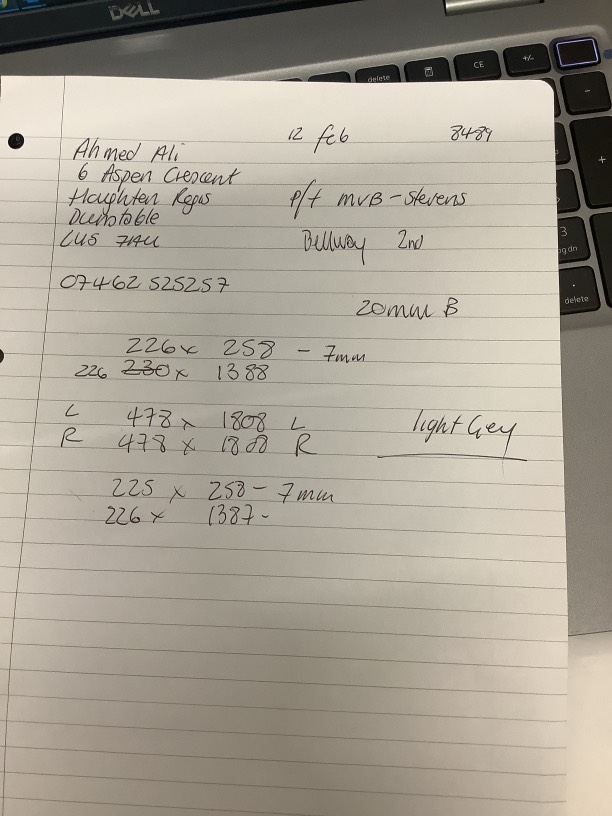 DELL
delete
CE
+/-
-
+
3
pg dn
.
delete
12 feb 8489
Ahmed Ali
6 Aspen Crescent
Houghten Regis p/f MVB - Stevens
Dunstable
LU5 7AU Bellway 2nd
07462 525257
20mm B
226 x 258 - 7mm
226 230 x 1388
L 478 x 1808 L light Grey
R 478 x 1808 R
225 x 258 - 7mm
226 x 1387 -